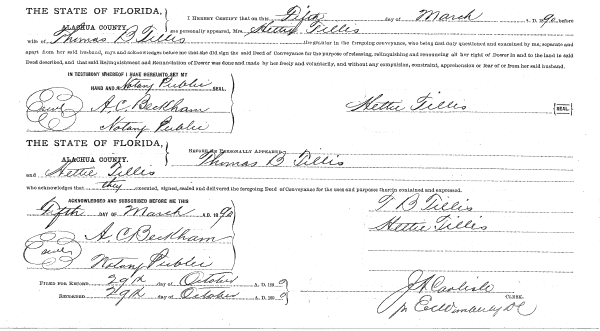 THE STATE OF FLORIDA,
ALACHUA COUNTY.
I HEREBY CERTIFY that on this Fifth day of March A. D. 1890, before
me personally appeared, Mrs. Hettie Tillis
wife of Thomas B Tillis the grantor in the foregoing conveyance, who being that duly questioned and examined by me, separate and
apart from her said husband, says and acknowledges before me that she did sign the said Deed of Conveyance for the purpose of releasing, relinquishing and renouncing all her right of Dower in and to the land in said
Deed described, and that said Relinquishment and Renunciation of Dower was done and made by her freely and voluntarily, and without any compulsion, constraint, apprehension or fear of or from her said husband.
IN TESTIMONY WHEREOF I HAVE HEREUNTO SET MY
HAND AND Notary Public SEAL.
Seal A. C. Beckham
Notary Public
Hettie Tillis SEAL.
THE STATE OF FLORIDA.
ALACHUA COUNTY.
BEFORE ME PERSONALLY APPEARED Thomas B Tillis
and Hettie Tillis
who acknowledges that they executed, signed, sealed and delivered the foregoing Deed of Conveyance for the uses and purposes therein contained and expressed.
ACKNOWLEDGED AND SUBSCRIBED BEFORE ME THIS
Fifth DAY OF March A. D. 1890
Seal A. C. Beckham
Notary Public
T B Tillis
Hettie Tillis
FILED FOR RECORD 29th day of October A. D. 189
RECORDED 29th day of October A. D. 189
J A Carlisle
CLERK.
pr